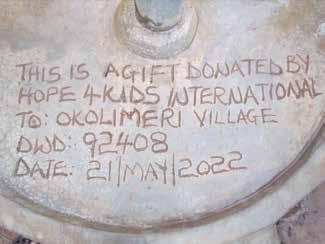 THIS IS A GIFT DONATED BY
HOPE 4KIDS INTERNATIONAL
TO: OKOLIMERI VILLAGE
DWD: 92408
DATE: 21/MAY/2022